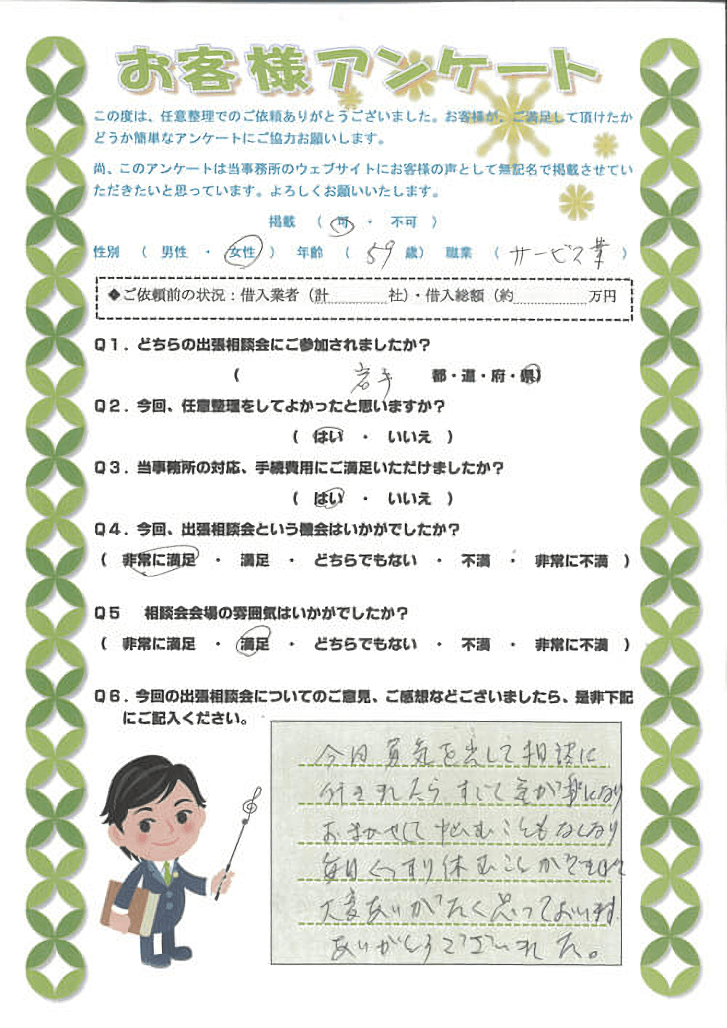 お客様アンケート
この度は、任意整理でのご依頼ありがとうございました。お客様が、ご満足して頂けたか
どうか簡単なアンケートにご協力お願いします。
尚、このアンケートは当事務所のウェブサイトにお客様の声として無記名で掲載させてい
ただきたいと思っています。よろしくお願いいたします。
掲載 （ 可 ・ 不可 ）
性別 （ 男性 ・ 女性 ） 年齢 （ 59 歳） 職業 （ サービス業 ）
◆ご依頼前の状況：借入業者（計 社）・借入総額（約 万円
Q1．どちらの出張相談会にご参加されましたか？
（ 岩手 都・道・府・県）
Q2．今回、任意整理をしてよかったと思いますか？
（ はい ・ いいえ ）
Q3．当事務所の対応、手続費用にご満足いただけましたか？
（ はい ・ いいえ ）
Q4．今回、出張相談会という機会はいかがでしたか？
（ 非常に満足 ・ 満足 ・ どちらでもない ・ 不満 ・ 非常に不満 ）
Q5 相談会会場の雰囲気はいかがでしたか？
（ 非常に満足 ・ 満足 ・ どちらでもない ・ 不満 ・ 非常に不満 ）
Q6．今回の出張相談会についてのご意見、ご感想などございましたら、是非下記
にご記入ください。
今回 勇気を出して相談に
気が楽になり
おまかせして 悩むこともなくなり
毎日ぐっすり休むことができて
大変ありがたく思っております。
ありがとうございました。